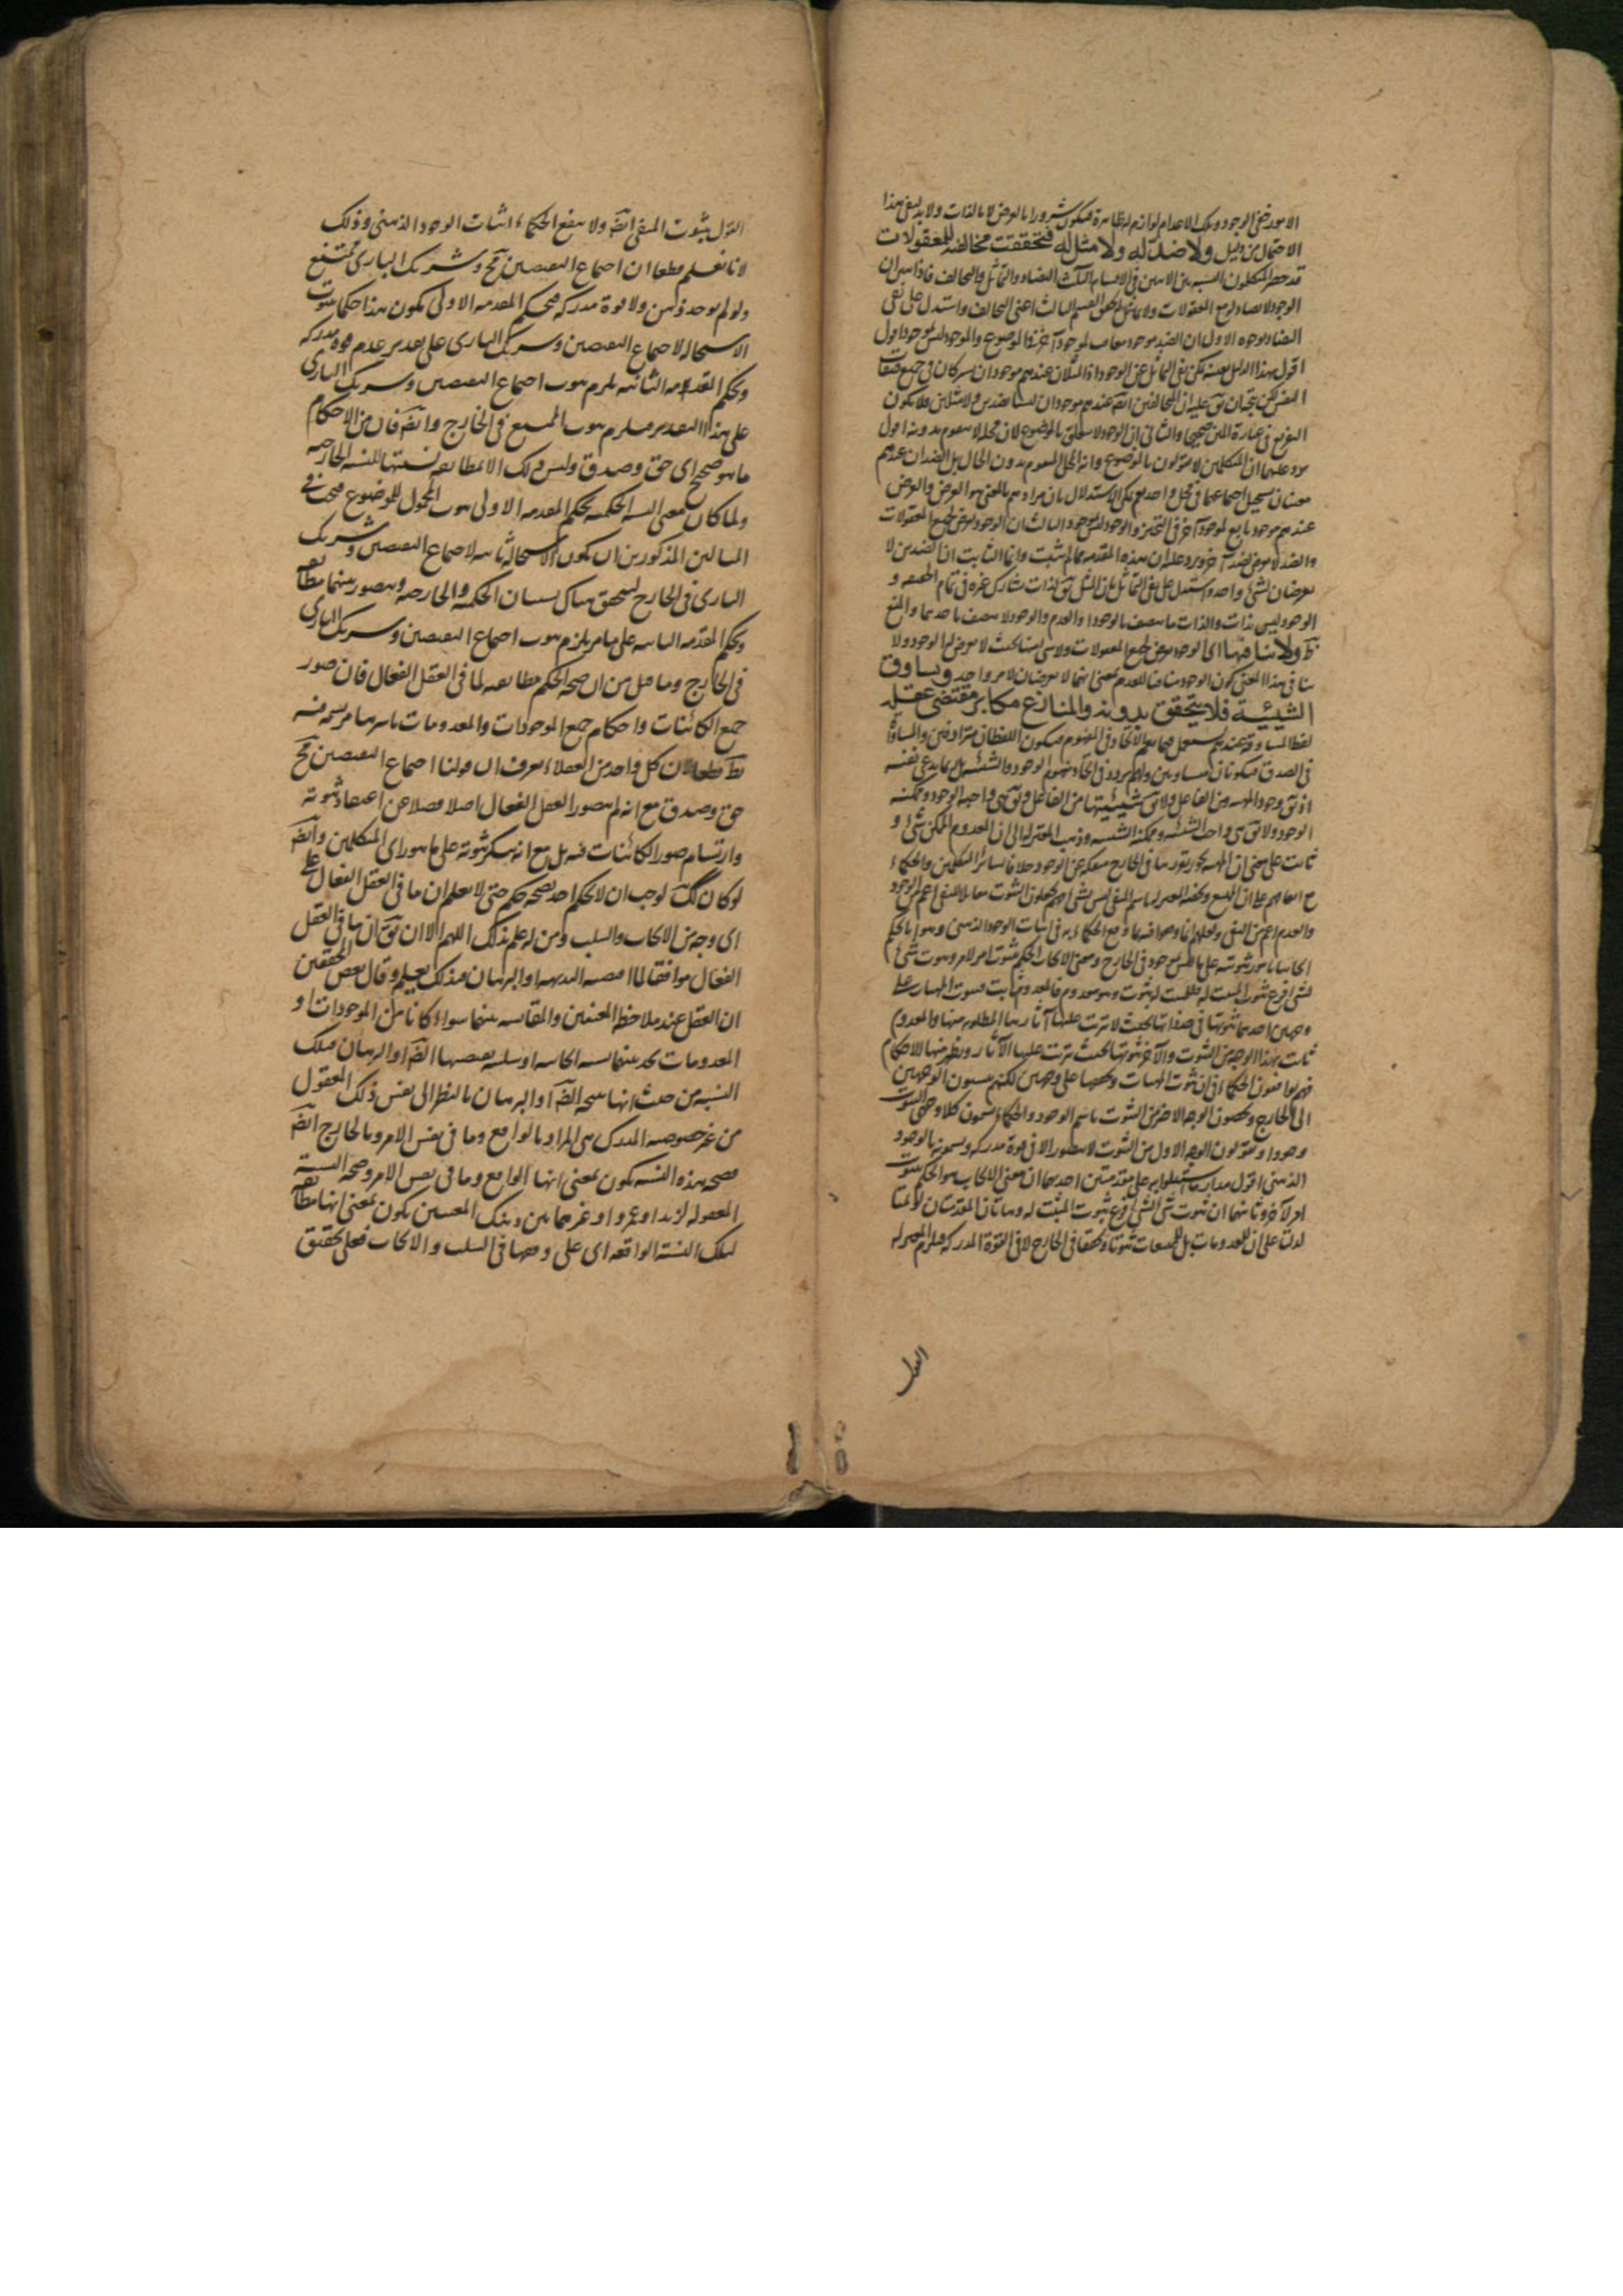 الامور غير الوجود وتلك الاعدام لوازم لها ظاهرة فيكون شرورا بالعرض لا بالذات ولا بد لنفى هذا
الاحتمال من دليل ولا ضد له ولا مثل له فتحققت مخالفته للمعقولات
قد حصر المتكلمون النسبة بين الامرين فى الاقسام الثلث التضاد والتماثل والتخالف فاذا تبين ان
الوجود لا يضاد لجميع المعقولات ولا يماثلها تحقق القسم الثالث اعنى التخالف واستدل على نفى
التضاد بوجوه الاول ان الضد موجود معاقب لموجود آخر فى الموضوع والموجود ليس بموجود اقول
اقول بهذا الدليل بعينه يمكن نفى التماثل عن الوجود اذ المثلان عندهم موجودان يشتركان فى جميع صفات
النفس لكن يتجه ان يق عليه ان المتخالفين ايض عندهم موجودان ليسا ضدين ولا مثلين فلا يكون
التفريع فى عبارة المتن صحيحا والثانى ان الوجود لا يتعلق بالموضوع لان محله لا يتقوم بدونه اقول
يرد عليهما ان المتكلمين لا يقولون بالموضوع وانه المحل المتقوم بدون الحال بل الضدان عندهم
معنيان يستحيل اجتماعهما فى محل واحد نعم يمكن الاستدلال بان مرادهم بالمعنى هو العرض والعرض
عندهم موجود تابع لموجود آخر فى التحيز والوجود ليس بموجود الثالث ان الوجود يعرض لجميع المعقولات
والضد لا يعرض لضد آخر ويرد عليه ان هذه المقدمة مما لم يثبت وانما الثابت ان الضدين لا
يعرضان لشئ واحد واستدل على نفى التماثل بان المثل يق لذات تشارك غيره فى تمام الحقيقة و
الوجود ليس بذات والذات ما يتصف بالوجود او العدم والوجود لا يتصف باحدهما والمنع
ظ ولا ينافيها اى الوجود يعرض لجميع المعقولات ولا شئ منها بحيث لا يعرض لها الوجود ولا
ينافى هذا المعنى كون الوجود منافيا للعدم بمعنى انهما لا يعرضان لامر واحد ويساوق
الشيئية فلا يتحقق بدونه والمنازع مكابر مقتضى عقله
لفظ المساوقة عندهم يستعمل فيما يعم الاتحاد فى المفهوم فيكون اللفظان مترادفين والمساواة
فى الصدق فيكونان متساويين
اذ يق وجود الماهية من الفاعل ولا يق شيئيتها من الفاعل ويق هى واجبة الوجود وممكنة
الوجود ولا يق هى واجبة الشيئية وممكنة الشيئية وذهب المعتزلة الى ان المعدوم الممكن شئ و
ثابت على معنى ان الماهية يجوز تقررها فى الخارج منفكة عن الوجود خلافا لسائر المتكلمين والحكماء
والعدم اعم من النفى
وجهين احدهما ثبوتها فى حد ذاتها بحيث لا يترتب عليها آثارها المطلوبة منها والمعدوم
ثابت بهذا الوجه من الثبوت والآخر ثبوتها بحيث يترتب عليها الآثار ويظهر منها الاحكام
فهم يوافقون الحكماء فى ان ثبوت الماهيات وتحققها على وجهين لكنهم ينسبون الوجهين
الى الخارج ويخصون الوجه الاخر من الثبوت باسم الوجود والحكماء يسمون كلا وجهى الثبوت
وجودا ويقولون الوجه الاول من الثبوت لا يتصور الا فى قوة مدركة ويسمونه بالوجود
الذهنى اقول مدار ما استدلوا به على مقدمتين احدهما ان معنى الايجاب هو الحكم بثبوت
امر لآخر وثانيهما ان ثبوت شئ لشئ فرع ثبوت المثبت له وهاتان المقدمتان لو تمتا
لدلتا على ان للمعدومات بل للممتنعات ثبوتا وتحققا فى الخارج لا فى القوة المدركة فيلزم المعتزلة
القول
القول بثبوت المنفى ايض ولا ينفع الحكماء اثبات الوجود الذهنى وذلك
لانا نعلم قطعا ان اجتماع النقيضين مح وشريك البارى ممتنع
ولو لم يوجد ذهن ولا قوة مدركة فبحكم المقدمة الاولى يكون هذا حكما بثبوت
الاستحالة لاجتماع النقيضين وشريك البارى على تقدير عدم قوة مدركة
وبحكم المقدمة الثانية يلزم ثبوت اجتماع النقيضين وشريك البارى
على هذا التقدير فيلزم ثبوت الممتنع فى الخارج وايض فان من الاحكام
ما هو صحيح اى حق وصدق وليس ذلك الا لمطابقة نسبتها للنسبة الخارجية
ولما كان معنى النسبة الحكمية بحكم المقدمة الاولى ثبوت المحمول للموضوع فيجب فى
المثالين المذكورين ان يكون الاستحالة ثابتة لاجتماع النقيضين وشريك
البارى فى الخارج ليتحقق هناك نسبتان الحكمية والخارجية ويتصور بينهما مطابقة
وبحكم المقدمة الثانية على ما مر يلزم ثبوت اجتماع النقيضين وشريك البارى
فى الخارج وما قيل من ان صحة الحكم مطابقته لما فى العقل الفعال فان صور
جميع الكائنات واحكام جميع الموجودات والمعدومات باسرها مرتسمة فيه
بط قطعا لان كل واحد من العقلاء يعرف ان قولنا اجتماع النقيضين مح
حق وصدق مع انه لم يتصور العقل الفعال اصلا فضلا عن اعتقاد ثبوته
وارتسام صور الكائنات فيه بل مع انه ينكر ثبوته على ما هو راى المتكلمين وايض
لو كان كك لوجب ان لا يحكم احد بصحة حكم حتى لا يعلم ان ما فى العقل الفعال على
اى وجه من الايجاب والسلب ومن له علم بذلك اللهم الا ان يق ان ما فى العقل
الفعال موافقا لما اقتضته البديهة او البرهان فبذلك يعلم وقال بعض المحققين
ان العقل عند ملاحظة المعنيين والمقايسة بينهما سواء كانا من الموجودات او
المعدومات يجد بينهما نسبة ايجابية او سلبية يقتضيها الضرورة او البرهان فتلك
النسبة من حيث انها نتيجة الضرورة او البرهان بالنظر الى نفس ذلك المعقول
من غير خصوصية المدرك هى المراد بالواقع وما فى نفس الامر وبالخارج ايض
فصحة هذه النسبة يكون بمعنى انها الواقع وما فى نفس الامر وصحة النسبة
المعقولة لزيد او عمرو او غيرهما بين ذينك المعنيين يكون بمعنى انها مطابقة
لتلك النسبة الواقعة اى على وجهها فى السلب والايجاب فعلى تحقيق